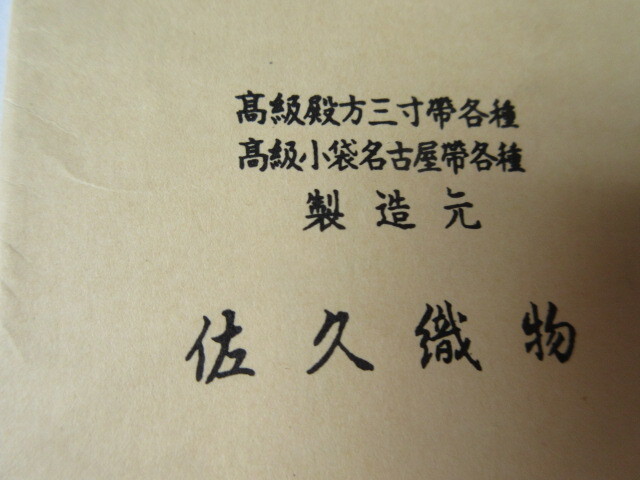 高級殿方三寸帶各種
高級小袋名古屋帶各種
製造元
佐久織物